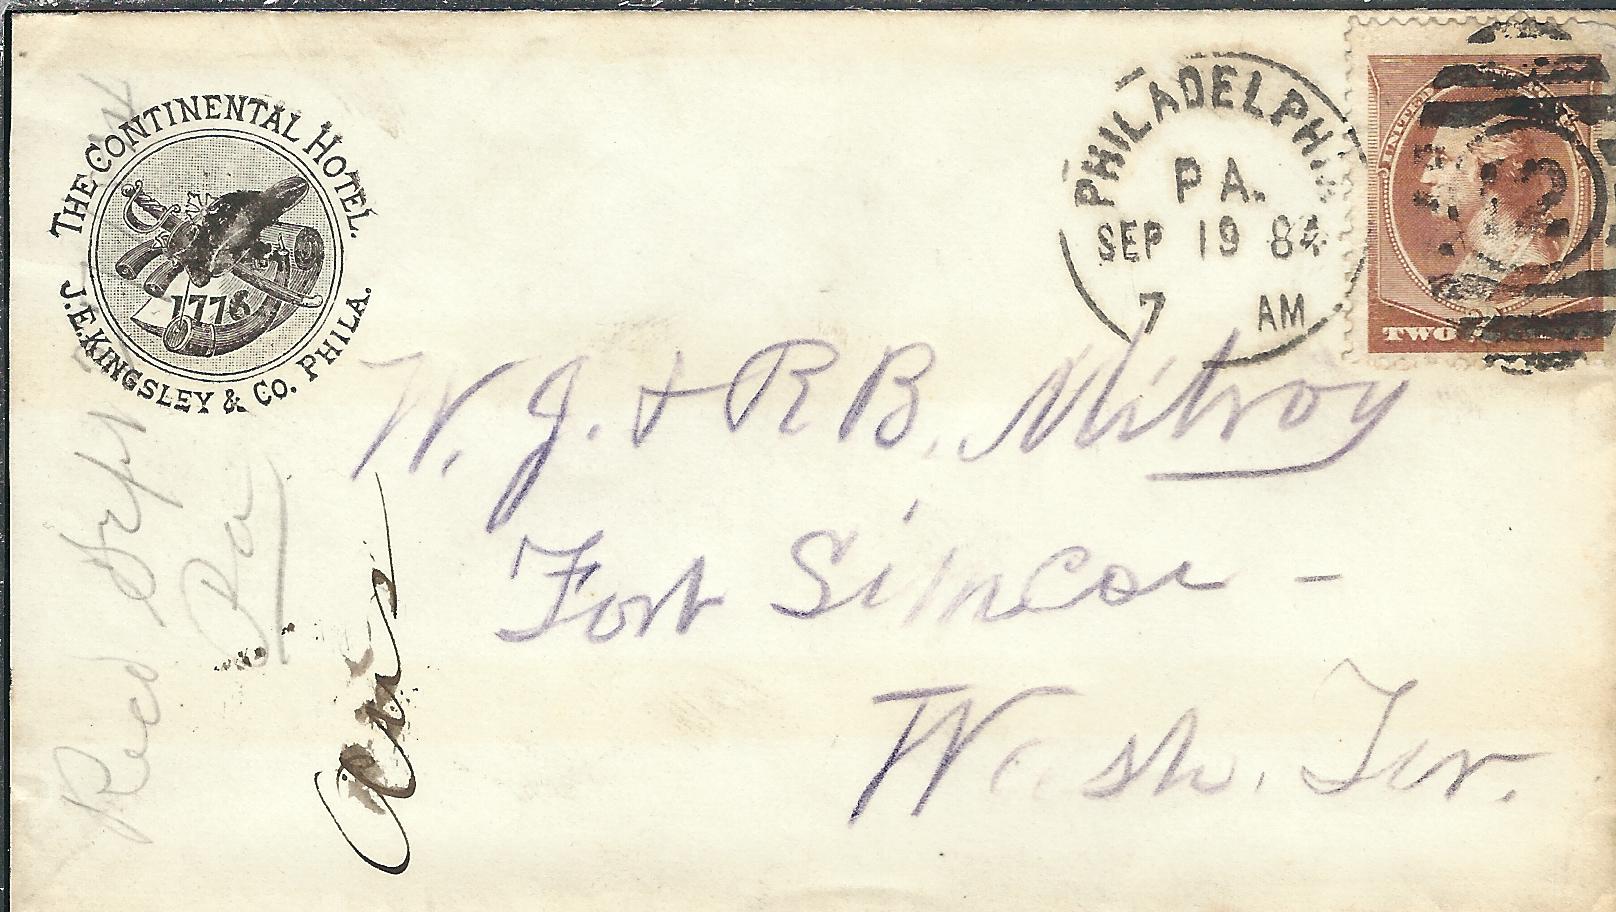 THE CONTINENTAL HOTEL.
1776
J. E. KINGSLEY & CO. PHILA.
PHILADELPHIA
PA.
SEP 19 84
7 AM
UNITED
2
TWO
W. J. & R B. Milroy
Fort Simcoe -
Wash. Ter.
Recd Sept
Pa
Ans